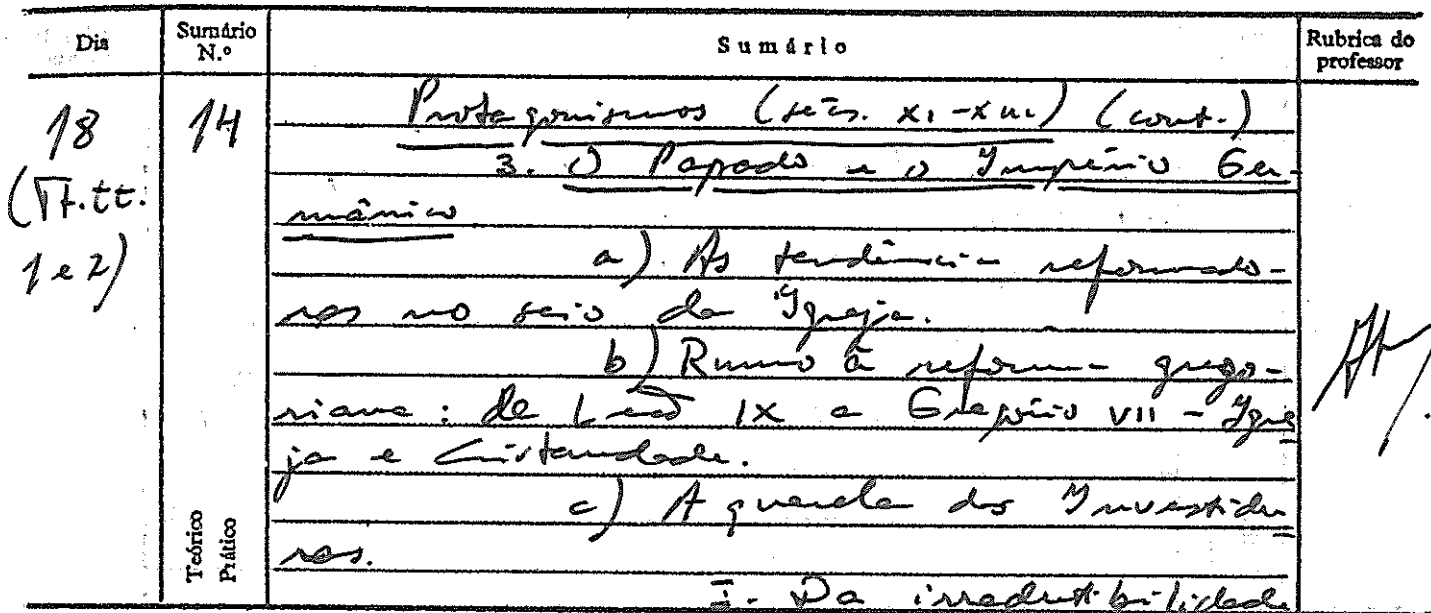 Dia
Sumário N.º
Sumário
Rubrica do professor
18
14
(TT.tt. 1 e 2)
Protagonismos (sécs. XI-XIII) (cont.)
3. O Papado e o Império Ger-
mânico
a). As tendências reformado-
ras no seio da Igreja.
b) Rumo à reforma grego-
riana: de Leão IX a Gregório VII - Igre
ja e Cristandade.
c) A querela das Investidu
ras.
I. Da irredutibilidade
Teórico
Prático